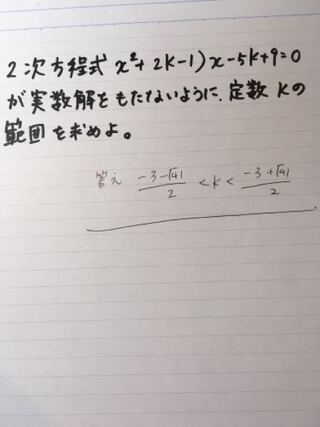 2次方程式 x²+2k-1)x-5k+9=0
が実数解をもたないように、定数kの
範囲を求めよ。
答え (-3-√41)/2 <k< (-3+√41)/2